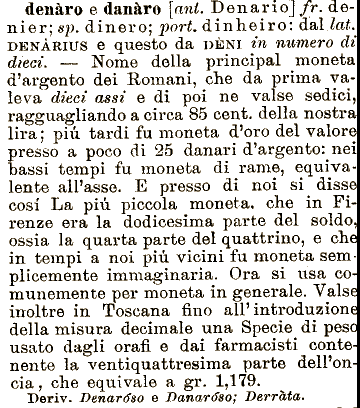 denàro e danàro [ant. Denario] fr. de-
nier; sp. dinero; port. dinheiro: dal lat.
DENÀRIUS e questo da DÈNI in numero di
dieci. — Nome della principal moneta
d'argento dei Romani, che da prima va-
leva dieci assi e di poi ne valse sedici,
ragguagliando a circa 85 cent. della nostra
lira; piú tardi fu moneta d'oro del valore
presso a poco di 25 danari d'argento: nei
bassi tempi fu moneta di rame, equiva-
lente all'asse. E presso di noi si disse
cosí La piú piccola moneta. che in Fi-
renze era la dodicesima parte del soldo,
ossia la quarta parte del quattrino, e che
in tempi a noi piú vicini fu moneta sem-
plicemente immaginaria. Ora si usa co-
munemente per moneta in generale. Valse
inoltre in Toscana fino all'introduzione
della misura decimale una Specie di peso
usato dagli orafi e dai farmacisti conte-
nente la ventiquattresima parte dell'on-
cia, che equivale a gr. 1,179.
Deriv. Denaróso e Danaróso; Derràta.